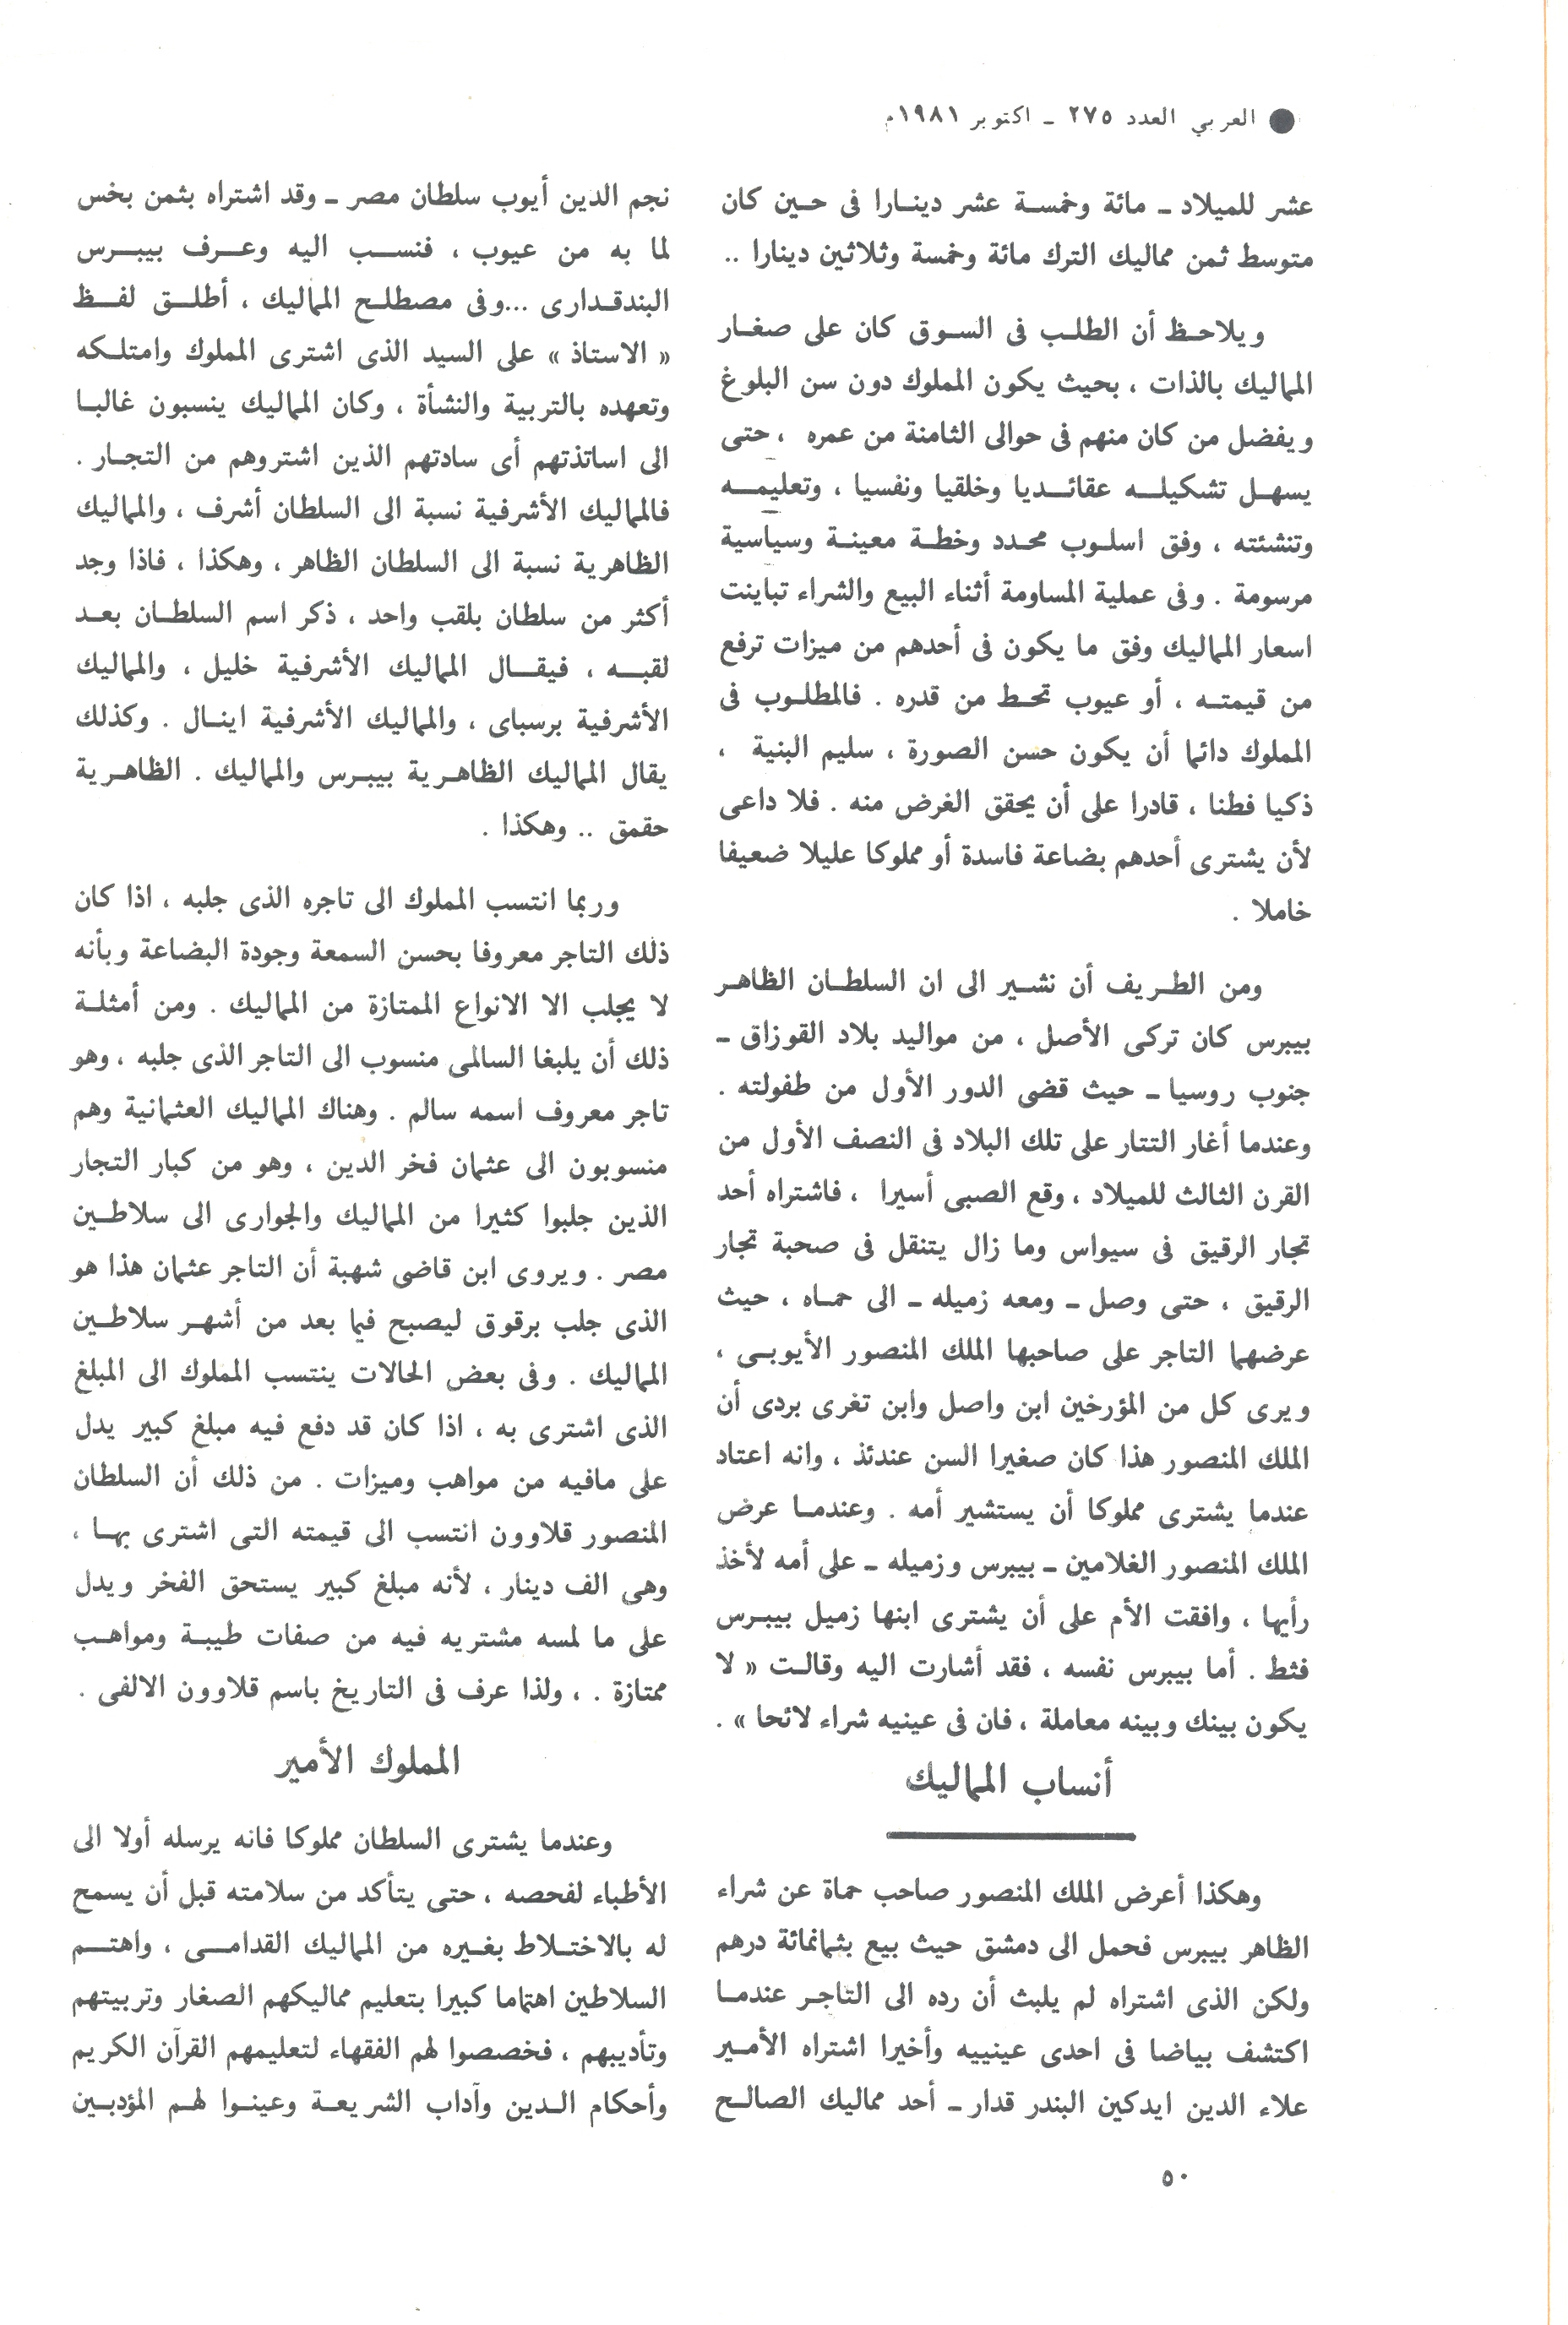 ● العربي العدد ٢٧٥ ـ اكتوبر ١٩٨١م
عشر للميلاد ـ مائة وخمسة عشر دينارا فى حين كان
متوسط ثمن مماليك الترك مائة وخمسة وثلاثين دينارا ..
ويلاحظ أن الطلب فى السوق كان على صغار
المماليك بالذات ، بحيث يكون المملوك دون سن البلوغ
ويفضل من كان منهم فى حوالى الثامنة من عمره ، حتى
يسهل تشكيله عقائديا وخلقيا ونفسيا ، وتعليمه
وتنشئته ، وفق اسلوب محدد وخطة معينة وسياسية
مرسومة . وفى عملية المساومة أثناء البيع والشراء تباينت
اسعار المماليك وفق ما يكون فى أحدهم من ميزات ترفع
من قيمته ، أو عيوب تحط من قدره . فالمطلوب فى
المملوك دائما أن يكون حسن الصورة ، سليم البنية ،
ذكيا فطنا ، قادرا على أن يحقق الغرض منه . فلا داعى
لأن يشترى أحدهم بضاعة فاسدة أو مملوكا عليلا ضعيفا
خاملا .
ومن الطريف أن نشير الى ان السلطان الظاهر
بيبرس كان تركى الأصل ، من مواليد بلاد القوزاق ـ
جنوب روسيا ـ حيث قضى الدور الأول من طفولته .
وعندما أغار التتار على تلك البلاد فى النصف الأول من
القرن الثالث للميلاد ، وقع الصبى أسيرا ، فاشتراه أحد
تجار الرقيق فى سيواس وما زال يتنقل فى صحبة تجار
الرقيق ، حتى وصل ـ ومعه زميله ـ الى حماه ، حيث
عرضهما التاجر على صاحبها الملك المنصور الأيوبى ،
ويرى كل من المؤرخين ابن واصل وابن تغرى بردى أن
الملك المنصور هذا كان صغيرا السن عندئذ ، وانه اعتاد
عندما يشترى مملوكا أن يستشير أمه . وعندما عرض
الملك المنصور الغلامين ـ بيبرس وزميله ـ على أمه لأخذ
رأيها ، وافقت الأم على أن يشترى ابنها زميل بيبرس
فثط . أما بيبرس نفسه ، فقد أشارت اليه وقالت « لا
يكون بينك وبينه معاملة ، فان فى عينيه شراء لائحا » .
أنساب المماليك
وهكذا أعرض الملك المنصور صاحب حماة عن شراء
الظاهر بيبرس فحمل الى دمشق حيث بيع بثمانمائة درهم
ولكن الذى اشتراه لم يلبث أن رده الى التاجر عندما
اكتشف بياضا فى احدى عينييه وأخيرا اشتراه الأمير
علاء الدين ايدكين البندر قدار ـ أحد مماليك الصالح
نجم الدين أيوب سلطان مصر ـ وقد اشتراه بثمن بخس
لما به من عيوب ، فنسب اليه وعرف بيبرس
البندقدارى ...وفى مصطلح المماليك ، أطلق لفظ
« الاستاذ » على السيد الذى اشترى المملوك وامتلكه
وتعهده بالتربية والنشأة ، وكان المماليك ينسبون غالبا
الى اساتذتهم أى سادتهم الذين اشتروهم من التجار .
فالمماليك الأشرفية نسبة الى السلطان أشرف ، والمماليك
الظاهرية نسبة الى السلطان الظاهر ، وهكذا ، فاذا وجد
أكثر من سلطان بلقب واحد ، ذكر اسم السلطان بعد
لقبه ، فيقال المماليك الأشرفية خليل ، والمماليك
الأشرفية برسباى ، والمماليك الأشرفية اينال . وكذلك
يقال المماليك الظاهرية بيبرس والمماليك . الظاهرية
حقمق .. وهكذا .
وربما انتسب المملوك الى تاجره الذى جلبه ، اذا كان
ذلك التاجر معروفا بحسن السمعة وجودة البضاعة وبأنه
لا يجلب الا الانواع الممتازة من المماليك . ومن أمثلة
ذلك أن يلبغا السالمى منسوب الى التاجر الذى جلبه ، وهو
تاجر معروف اسمه سالم . وهناك المماليك العثمانية وهم
منسوبون الى عثمان فخر الدين ، وهو من كبار التجار
الذين جلبوا كثيرا من المماليك والجوارى الى سلاطين
مصر . ويروى ابن قاضى شهبة أن التاجر عثمان هذا هو
الذى جلب برقوق ليصبح فيما بعد من أشهر سلاطين
المماليك . وفى بعض الحالات ينتسب المملوك الى المبلغ
الذى اشترى به ، اذا كان قد دفع فيه مبلغ كبير يدل
على مافيه من مواهب وميزات . من ذلك أن السلطان
المنصور قلاوون انتسب الى قيمته التى اشترى بها ،
وهى الف دينار ، لأنه مبلغ كبير يستحق الفخر ويدل
على ما لمسه مشتريه فيه من صفات طيبة ومواهب
ممتازة . ، ولذا عرف فى التاريخ باسم قلاوون الالفى .
المملوك الأمير
وعندما يشترى السلطان مملوكا فانه يرسله أولا الى
الأطباء لفحصه ، حتى يتأكد من سلامته قبل أن يسمح
له بالاختلاط بغيره من المماليك القدامى ، واهتم
السلاطين اهتماما كبيرا بتعليم مماليكهم الصغار وتربيتهم
وتأديبهم ، فخصصوا لهم الفقهاء لتعليمهم القرآن الكريم
وأحكام الدين وآداب الشريعة وعينوا لهم المؤدبين
٥٠